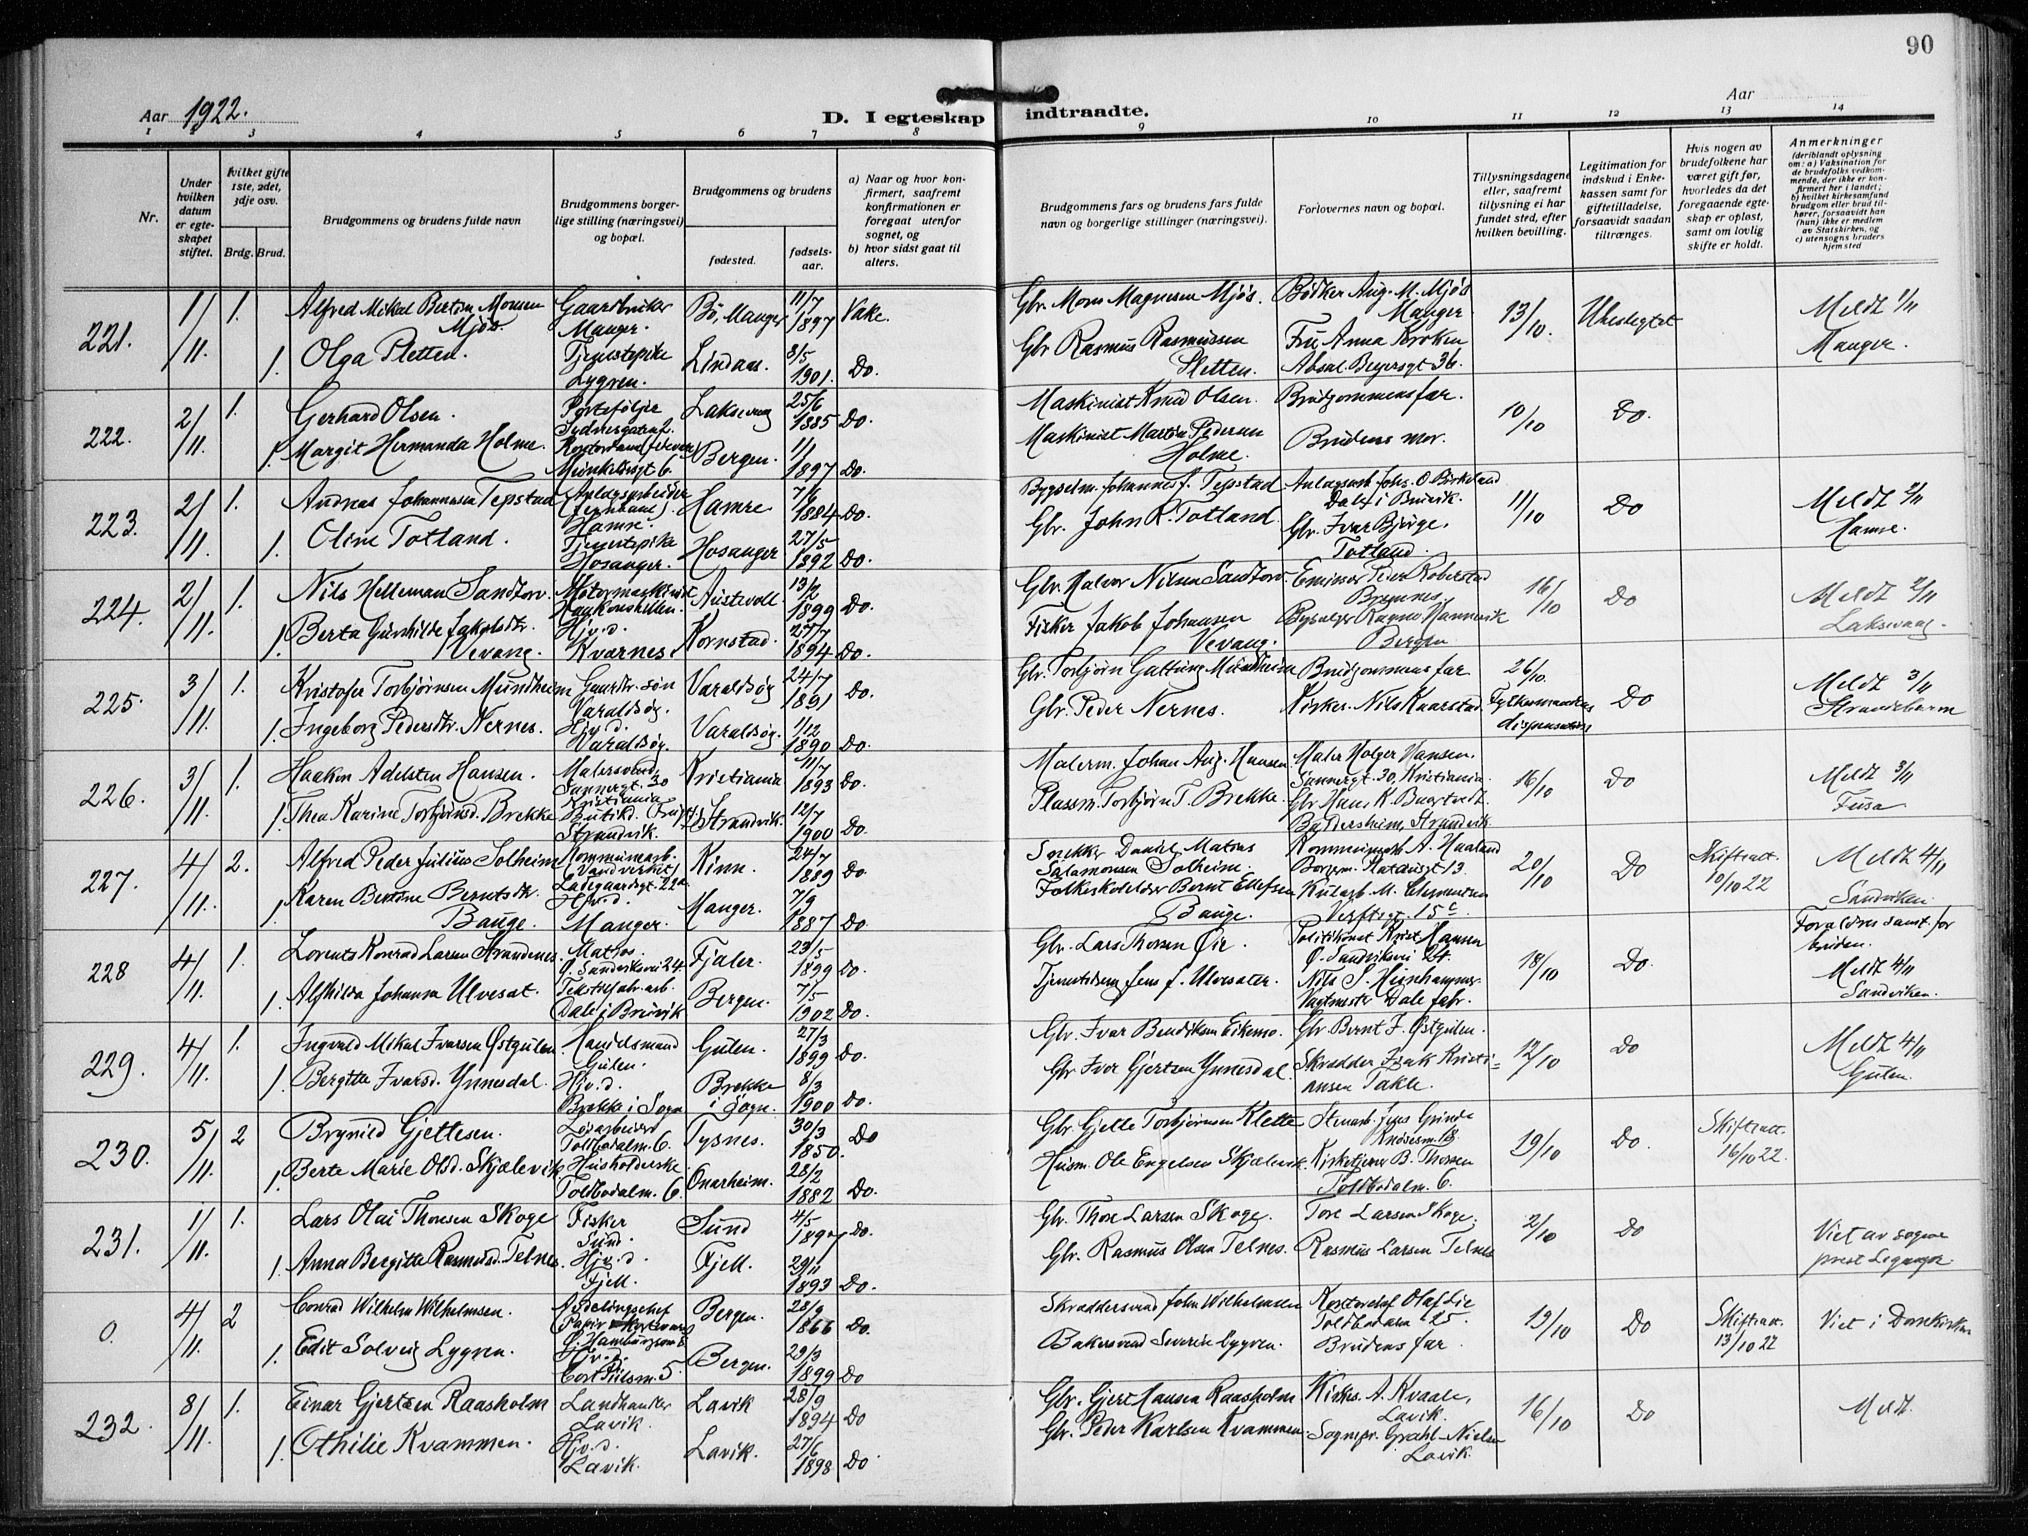 90
Aar 1922.
D. I egteskap indtraadte.
Aar
1 2 3 4 5 6 7 8 9 10 11 12 13 14
Nr.
Under hvilken datum er egteskapet stiftet.
Hvilket gifte 1ste, 2det, 3dje osv.
Brdg. Brud.
Brudgommens og brudens fulde navn
Brudgommens borgerlige stilling (næringsvei) og bopæl.
Brudgommens og brudens
fødested.
fødselsaar.
a) Naar og hvor konfirmert, saafremt konfirmationen er foregaat utenfor sognet, og
b) hvor sidst gaat til alters.
Brudgommens fars og brudens fars fulde navn og borgerlige stillinger (næringsvei).
Forlovernes navn og bopæl.
Tillysningsdagene eller, saafremt tillysning ei har fundet sted, efter hvilken bevilling.
Legitimation for indskud i Enkekassen samt for giftetilladelse, forsaavidt saadan tiltrænges.
Hvis nogen av brudefolkene har været gift før, hvorledes da det foregaaende egteskap er opløst, samt om lovlig skifte er holdt.
Anmerkninger
(deriblandt oplysning om: a) Vaksination for de brudefolks vedkommende, der ikke er konfirmert her i landet; b) hvilket kirkesamfund brudgom eller brud tilhører, forsaavidt han (hun) ikke er medlem av Statskirken, og c) utensogns bruders hjemsted
221. 1/11. 1. Alfred Mikal Bertin Monsen Mjøs Gaardbruker Manger. Bö, Manger 11/7 1897 Vake. Gbr. Mons Magnesen Mjøs. Bødker Aug. M. Mjøs Manger 13/10. Ubeslegtet Meldt 1/11 Manger.
1. Olga Sletten. Tjenestepike Lygren. Lindaas. 8/5 1901. Do. Gbr Rasmus Rasmussen Sletten. Fru Anna Kroken Absal. Beyersgt 36.
222. 2/11. 1. Gerhard Olsen. Laksevaag 25/6 1885 Do. Maskinist Knud Olsen. Brudgommens far. 10/10 Do.
1. Margit Hermanda Holme. Bergen. 1/1 1897 Do. Maskinist Martin Pedersen Holme. Brudens mor.
223. 2/11. 1. Andreas Johannesen Tepstad Anlagsarbeider Hamre. Hamre 7/6 1884 Do. Johannes J. Tepstad Dale i Bruvik. 11/10 Do Meldt 2/11 Hamre.
1. Oline Totland. Tjenestepike Hosanger. Hosanger 27/5 1892 Do. Gbr. John K. Totland. Gbr. Ivar Bjørge, Totland.
224. 2/11. 1. Nils Helleman Sandtorv. Motormaskinist Haukonshellen. Austevoll 13/2 1899 Do. Gbr. Halvor Nilsen Sandtorv. Bremnes. 16/10 Do Meldt 2/11 Laksevaag.
1. Berta Gunhilde Jakobsdtr. Vevang. Hjv. d. Kvernes. Kornstad. 27/7 1894 Do. Fisker Jakob Johansen Vevang. Bergen
225. 3/11. 1. Kristofer Torbjørnsen Mundheim Gaardbr. søn Varaldsøy. Varaldsøy 24/7 1891 Do. Gbr. Torbjørn Gattung Mundheim Brudgommens far 26/10. Fylkesmandens dispensation Do Meldt 3/11 Strandebarm
1. Ingeborg Pedersdtr. Nernes. Hjv. d. Varaldsøy. Varaldsøy. 1/12 1890 Do. Gbr. Peder Nernes. Nils Kaarstad.
226. 3/11. 1. Haakon Adelsten Hansen. Malersvend Sannergt. 30 Kristiania Kristiania 11/7 1893 Do. Malerm. Johan Aug. Hansen Maler Holger Hansen, Sannergt. 30, Kristiania. 16/10 Do Meldt 3/11 Fusa
1. Thea Karine Torbjørnsd. Brekke Strandvik. Strandvik. 12/7 1900 Do. Plassm. Torbjørn T. Brekke. Strandvik
227. 4/11. 2. Alfred Peder Julius Solheim Kommunearb. (Vandverket) Ladegaardsgt. 22a Kinn. 24/7 1889 Do Snekker Daniel Matias Salamonsen Solheim. Kommunearb. A. Haaland 20/10 Do Skifteatt. 10/10 22 Meldt 4/11 Sandviken.
1. Karen Bertine Berntsdtr. Bauge. Hjv. d. Manger. Manger. 7/9 1887 Do. Bernt Ellefsen Bauge. M. Clementsen Verftsgt. 15c.
228 4/11. 1. Lorents Konrad Larsen Strandenes. Matros Ø. Sandviksvei 24. Fjaler. 23/5 1899 Do. Gbr. Lars Thorsen Øie. Politikonst. Krist. Hansen Ø. Sandviksvei 18/10 Do. Forældres samt. for bruden. Meldt 4/11 Sandviken.
1. Alfhilda Johansa Ulvesæt. Dale i Bruvik Bergen. 7/5 1902 Do. Jens J. Ulvesæter. Vagtmester Dale fabr.
229. 4/11. 1. Ingvald Mikal Ivarsen Østgulen. Handelsmand Gulen. Gulen. 27/3 1899 Do. Gbr. Ivar Bendiksen Eikemo. Gbr Bernt J. Østgulen. 12/10 Do Meldt 4/11 Gulen.
1. Bergitte Ivarsd. Ynnesdal. Hjv. d. Brekke i Sogn Brekke i Sogn. 8/3 1900 Do. Gbr Iver Gjertsen Ynnesdal. Skrædder Isak Kristiansen Takle.
230. 5/11. 2 Brynild Gjellesen. Løsarbeider Toldbodalm. 6. Tysnes. 30/3 1850. Do Gbr. Gjelle Torbjørnsen Kletta Stenarb. Jens Grinde Knøsesm. 18. 19/10 Do. Skifteatt. 16/10 22.
1. Berte Marie Olsd. Skjælevik Husholderske Toldbodalm. 6. Onarheim. 28/2 1882 Do. Husm. Ole Engelsen Skjælevik Kirketjener B. Thorsen Toldbodalm. 6.
231. 1/11. 1. Lars Olai Thoresen Skoge Fisker Sund. Sund 4/5 1897 Do. Gbr. Thore Larsen Skoge. Tore Larsen Skoge. 2/10 Do Viet av sogneprest
1. Anna Bergitte Rasmusd. Telnes. Hjv. d. Fjell. Fjell. 29/11 1893 Do. Gbr. Rasmus Olsen Telnes. Rasmus Larsen Telnes
0. 4/11. 2 Conrad Wilhelm Wilhelmsen. Avdelingschef Bergen. 28/9 1866 Do. Skræddersvend John Wilhelmsen Kontorchef Olaf Lie Toldbodalm 25. 19/10 Do Skifteatt. 13/10 22 Viet i Domkirken
1. Edit Solveig Lygren. Hjv. d. Cort Piilsm. 5 Bergen. 29/3 1899 Do Bakersvend Severin Lygren. Brudens far.
232. 8/11. 1. Einar Gjertsen Raasholm Landhandler Lavik. Lavik 28/9 1894 Do Gbr. Gjert Hansen Raasholm Kirkes. A. Kvaale, Lavik. 16/10 Do Meldt.
1. Othilie Kvammen. Hjv. d. Lavik. Lavik. 27/6 1898 Do Gbr. Peder Karlsen Kvammen Sognepr. Grahl-Nielsen Lavik.